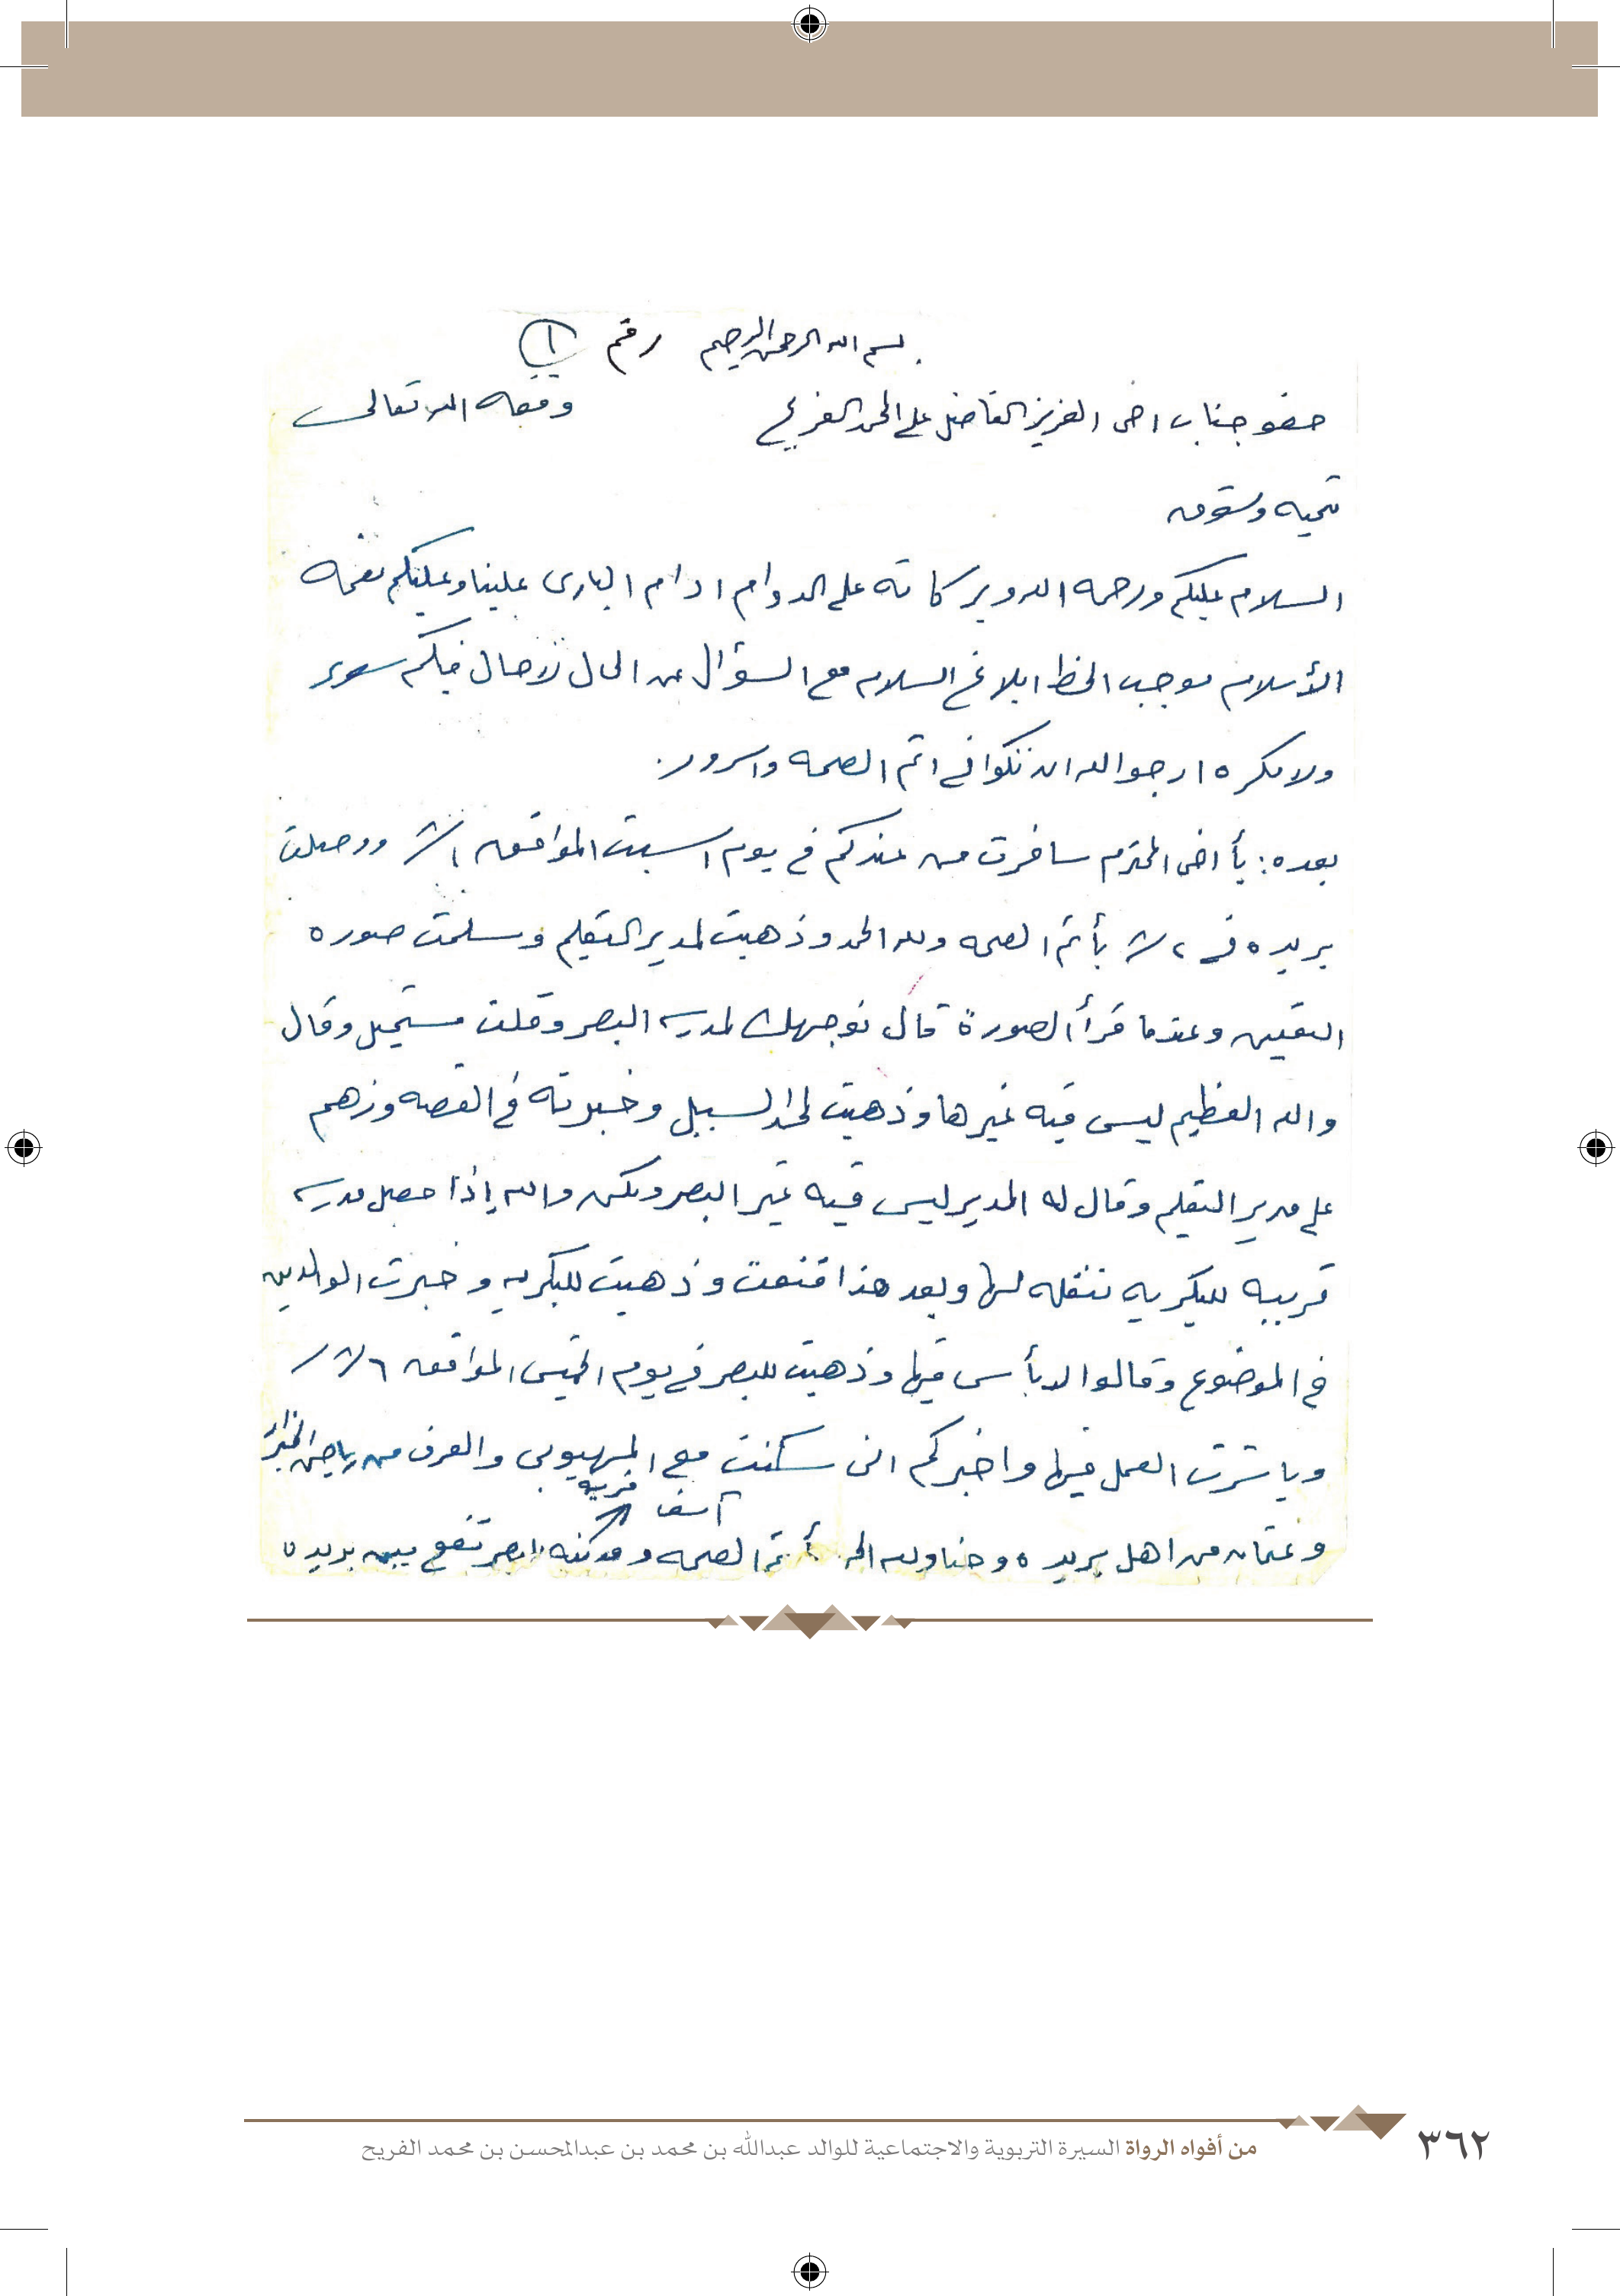 بسم الله الرحمن الرحيم رقم ١
حضو جناب اخى العزيز الفاضل على الحمد الفريح وفقه الله تعالى
تحيه وشوق
السلام عليكم ورحمه الله وبركاته على الدوام ادام البارى علينا وعليكم نعمه
الأسلام موجب الخط ابلاغ السلام مع السؤال عن الحال لازال فيكم سرور
ولا مكره ارجو الله ان تكوا في اتم الصحه واسرور.
بعده: يأ اخى المحترم سافرت من عندكم في يوم اسبت الموافق ٨/١ ووصلت
بريده في ٨/٢ بأتم الصحه ولله الحمد وذهبت لمدير التعليم وسلمت صوره
التعيين وعندما قرأ الصورة قال نوجهك لمدرسه البصر وقلت مستحيل وقال
والله العظيم ليس فيه غيرها وذهبت لحمد السبيل وخبرته في القصه وزهم
على مدير التعليم وقال له المدير ليس فيه غير البصر ولكن والله إذا حصل مدرسه
قريبه للبكريه ننقله لها وبعد هذا قنعت وذهبت للبكريه وخبرت الوالدين
في الموضوع وقالوا لابأس فيها وذهبت للبصر في يوم الخميس الموافق ٨/٦/
وباشرت العمل فيها واخبركم انى سكنت مع المهيوبى والعرف من رياض الخبرا
آسف قريه
وعثمان من اهل بريده وحنا ولله الحمد بأتم الصحه و البصر تقع بين بريده
٣٦٢ من أفواه الرواة السيرة التربوية والاجتماعية للوالد عبدالله بن محمد بن عبدالمحسن بن محمد الفريح